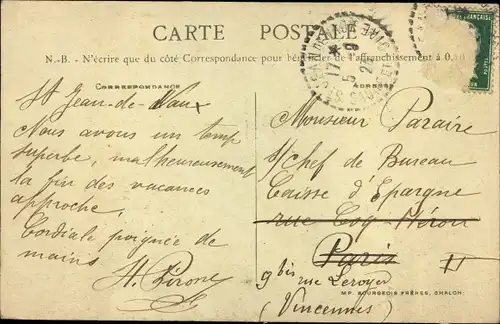 CARTE POSTALE
N.-B. - N'écrire que du côté Correspondance pour bénéficier de l'affranchissement à 0,
CORRESPONDANCE
ADRESSE
St Jean-de-Vaux
Nous avons un temps
superbe, malheureusement
la fin des vacances
approche.
Cordiale poignée de
mains
Monsieur Paraire
s/chef de Bureau
Caisse d'Epargne
rue Coq-Héron
Paris
9 bis rue Leroyer
(Vincennes)
MP. BOURGEOIS FRÈRES, CHALON